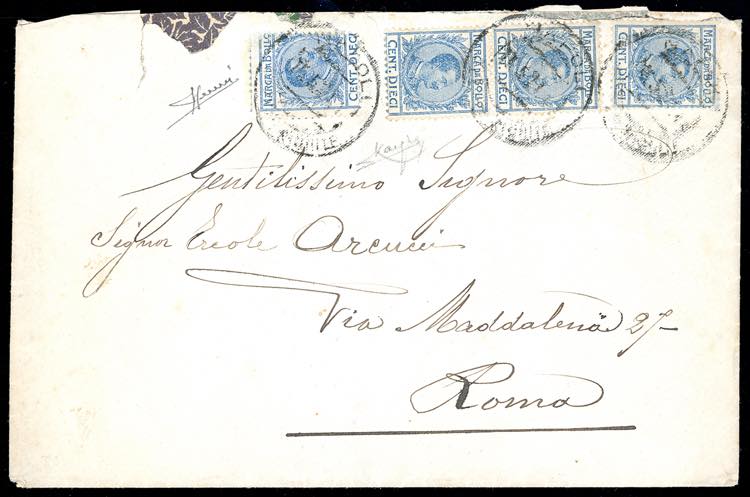 MARCA DA BOLLO
CENT. DIECI
CENT. DIECI
MARCA DA BOLLO
CENT. DIECI
MARCA DA BOLLO
CENT. DIECI
MARCA DA BOLLO
Gentilissimo Signore
Signor Ercole Arcucci
Via Maddalena 27
Roma